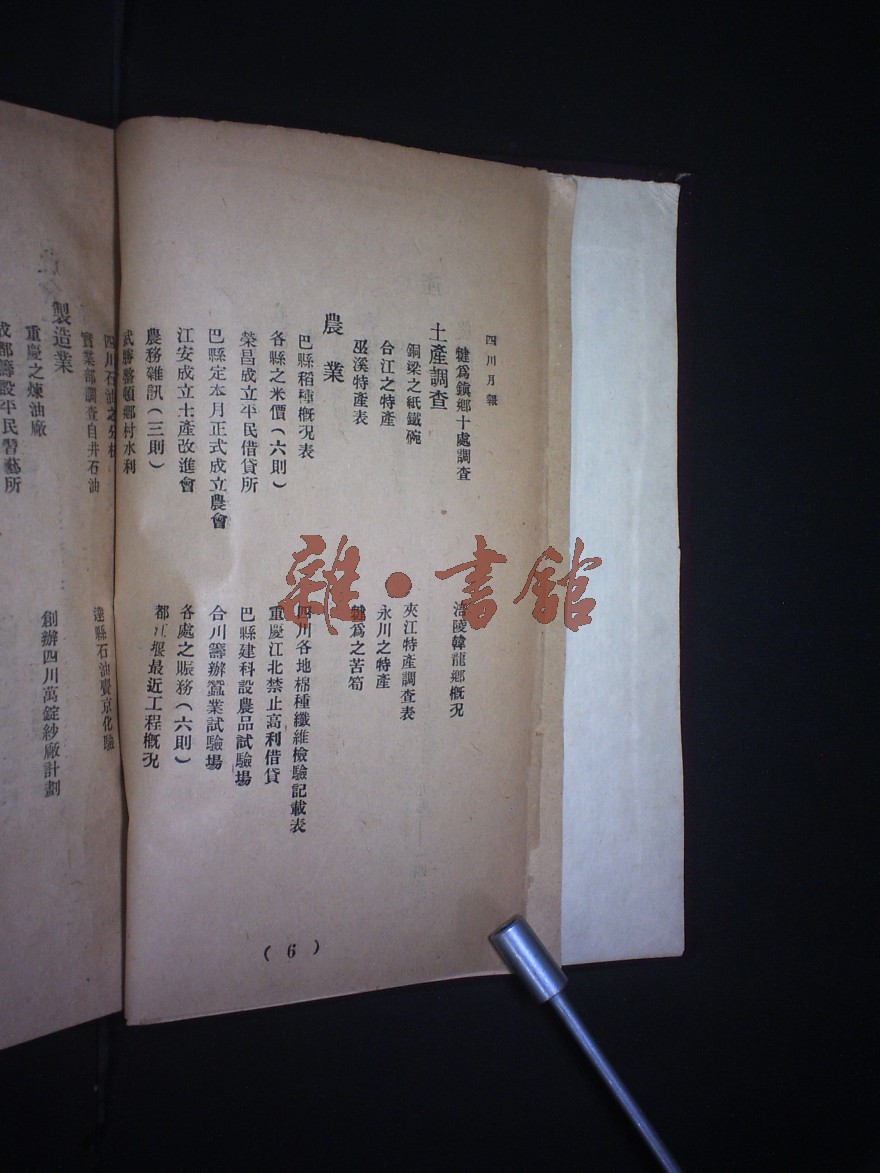 四川月報
犍爲鎭鄉十處調查
涪陵韓龍鄉概况
土產調查
銅梁之紙鐵碗
夾江特產調查表
合江之特產
永川之特產
巫溪特產表
犍爲之苦筍
農業
巴縣稻種概况表
四川各地棉種纖維檢驗記載表
各縣之米價(六則)
重慶江北禁止高利借貸
榮昌成立平民借貸所
巴縣建科設農品試驗場
巴縣定本月正式成立農會
合川籌辦蠶業試驗場
江安成立土產改進會
各處之賑務(六則)
農務雜訊(三則)
都江堰最近工程概况
武勝整頓鄉村水利
(6)
四川石油之分析
達縣石油賚京化驗
實業部調查自井石油
製造業
重慶之煉油廠
創辦四川萬錠紗廠計劃
成都籌設平民習藝所
雜·書館